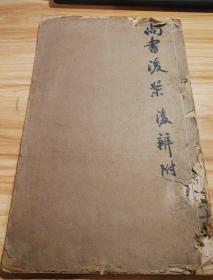 尚书後案 後辨附